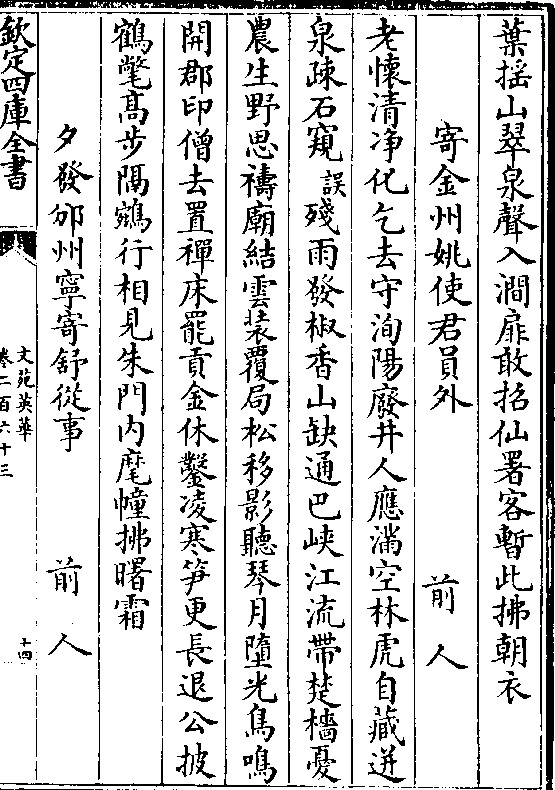 葉揺山翠泉聲入澗扉敢招仙署客暫此拂朝衣
寄金州姚使君員外 前人
老懷清净化乞去守洵陽廢井人應滿空林虎自藏迸
泉疎石窺誤殘雨發椒香山缺通巴峽江流帶楚檣憂
農生野思禱廟結雲裝覆局松移影聽琴月墮光鳥鳴
開郡印僧去置禪床罷貢金休鑿凌寒笋更長退公披
鶴氅髙步隔鵷行相見朱門内麾幢拂曙霜
夕發邠州寧寄舒從事 前人
欽定四庫全書
文苑英華
卷二百六十三
十四